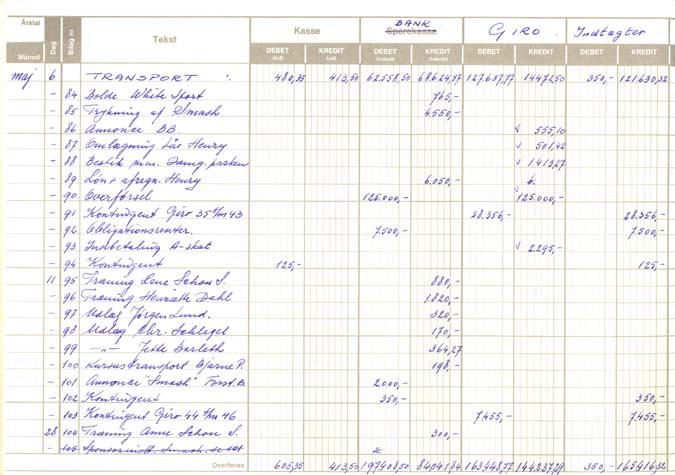 Årstal Måned Dag Bilag nr. Tekst Kasse BANK Sparekasse GIRO Indtægter
DEBET (ind) KREDIT (ud) DEBET (indsat) KREDIT (hævet) DEBET KREDIT DEBET KREDIT
maj 6 TRANSPORT 480,35 413,50 62.558,50 68624,57 127.637,77 14472,50 350,- 121.630,32
- 84 Bolde White Sport 765,-
- 85 Trykning af Smash 4.550,-
- 86 Annonce BB. √ 555,10
- 87 Omlægning Lås Henry √ 501,42
- 88 √ 1413,27
- 89 Løn + afregn. Henry 6.050,-
- 90 Overførsel 125.000,- √ 125.000,-
- 91 Kontingent Giro 35 43 28.356,- 28.356,-
- 92 Obligationsrenter. 7500,- 7500,-
- 93 Indbetaling A-skat √ 2295,-
- 94 Kontingent 125,- 125,-
11 95 Træning Lene Schou S. 880,-
- 96 Træning Henriette Dahl 1.820,-
- 97 Udlæg Jørgen Lund. 320,-
- 98 Udlæg Chr. Schlegel 170,-
- 99 -"- Jette Barleth 364,27
- 100 Kursustransport Bjarne P. 198,-
- 101 Annonce "Smash" 2000,-
- 102 Kontingent 350,- 350,-
- 103 Kontingent Giro 44 46 7.455,- 7.455,-
28 104 Træning Anne Schou S. 300,-
- 105
Overføres 605,35 413,50 197408,50 84041,84 163.448,77 144.237,29 350,- 165.416,32